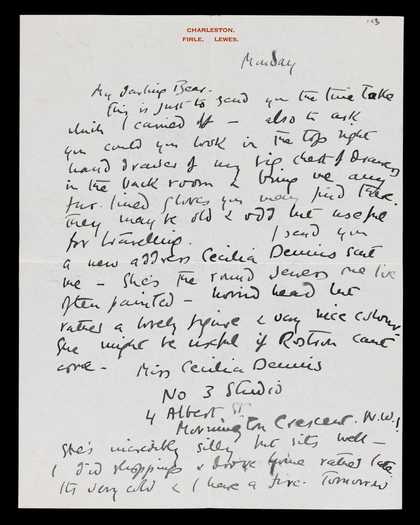 113
CHARLESTON,
FIRLE, LEWES.
Monday
My darling Bear.
This is just to send you the time table
which I carried off – also to ask
you could you look in the top right
hand drawer of my big chest of drawers
in the back room & bring me any
fur lined gloves you may find there.
They may be old & odd but useful
for travelling. I send you
a new address Cecilia Dennis sent
me – She's the round Jewess one I've
often painted – horrid head but
rather a lovely figure & very nice colour.
She might be useful if Rostron can't
come – Miss Cecilia Dennis
No 3 Studio
4 Albert St
Mornington Crescent. N.W.1
She's incredibly silly but sits well –
I did shoppings & drove home rather late
It's very cold & I have a fire. Tomorrow